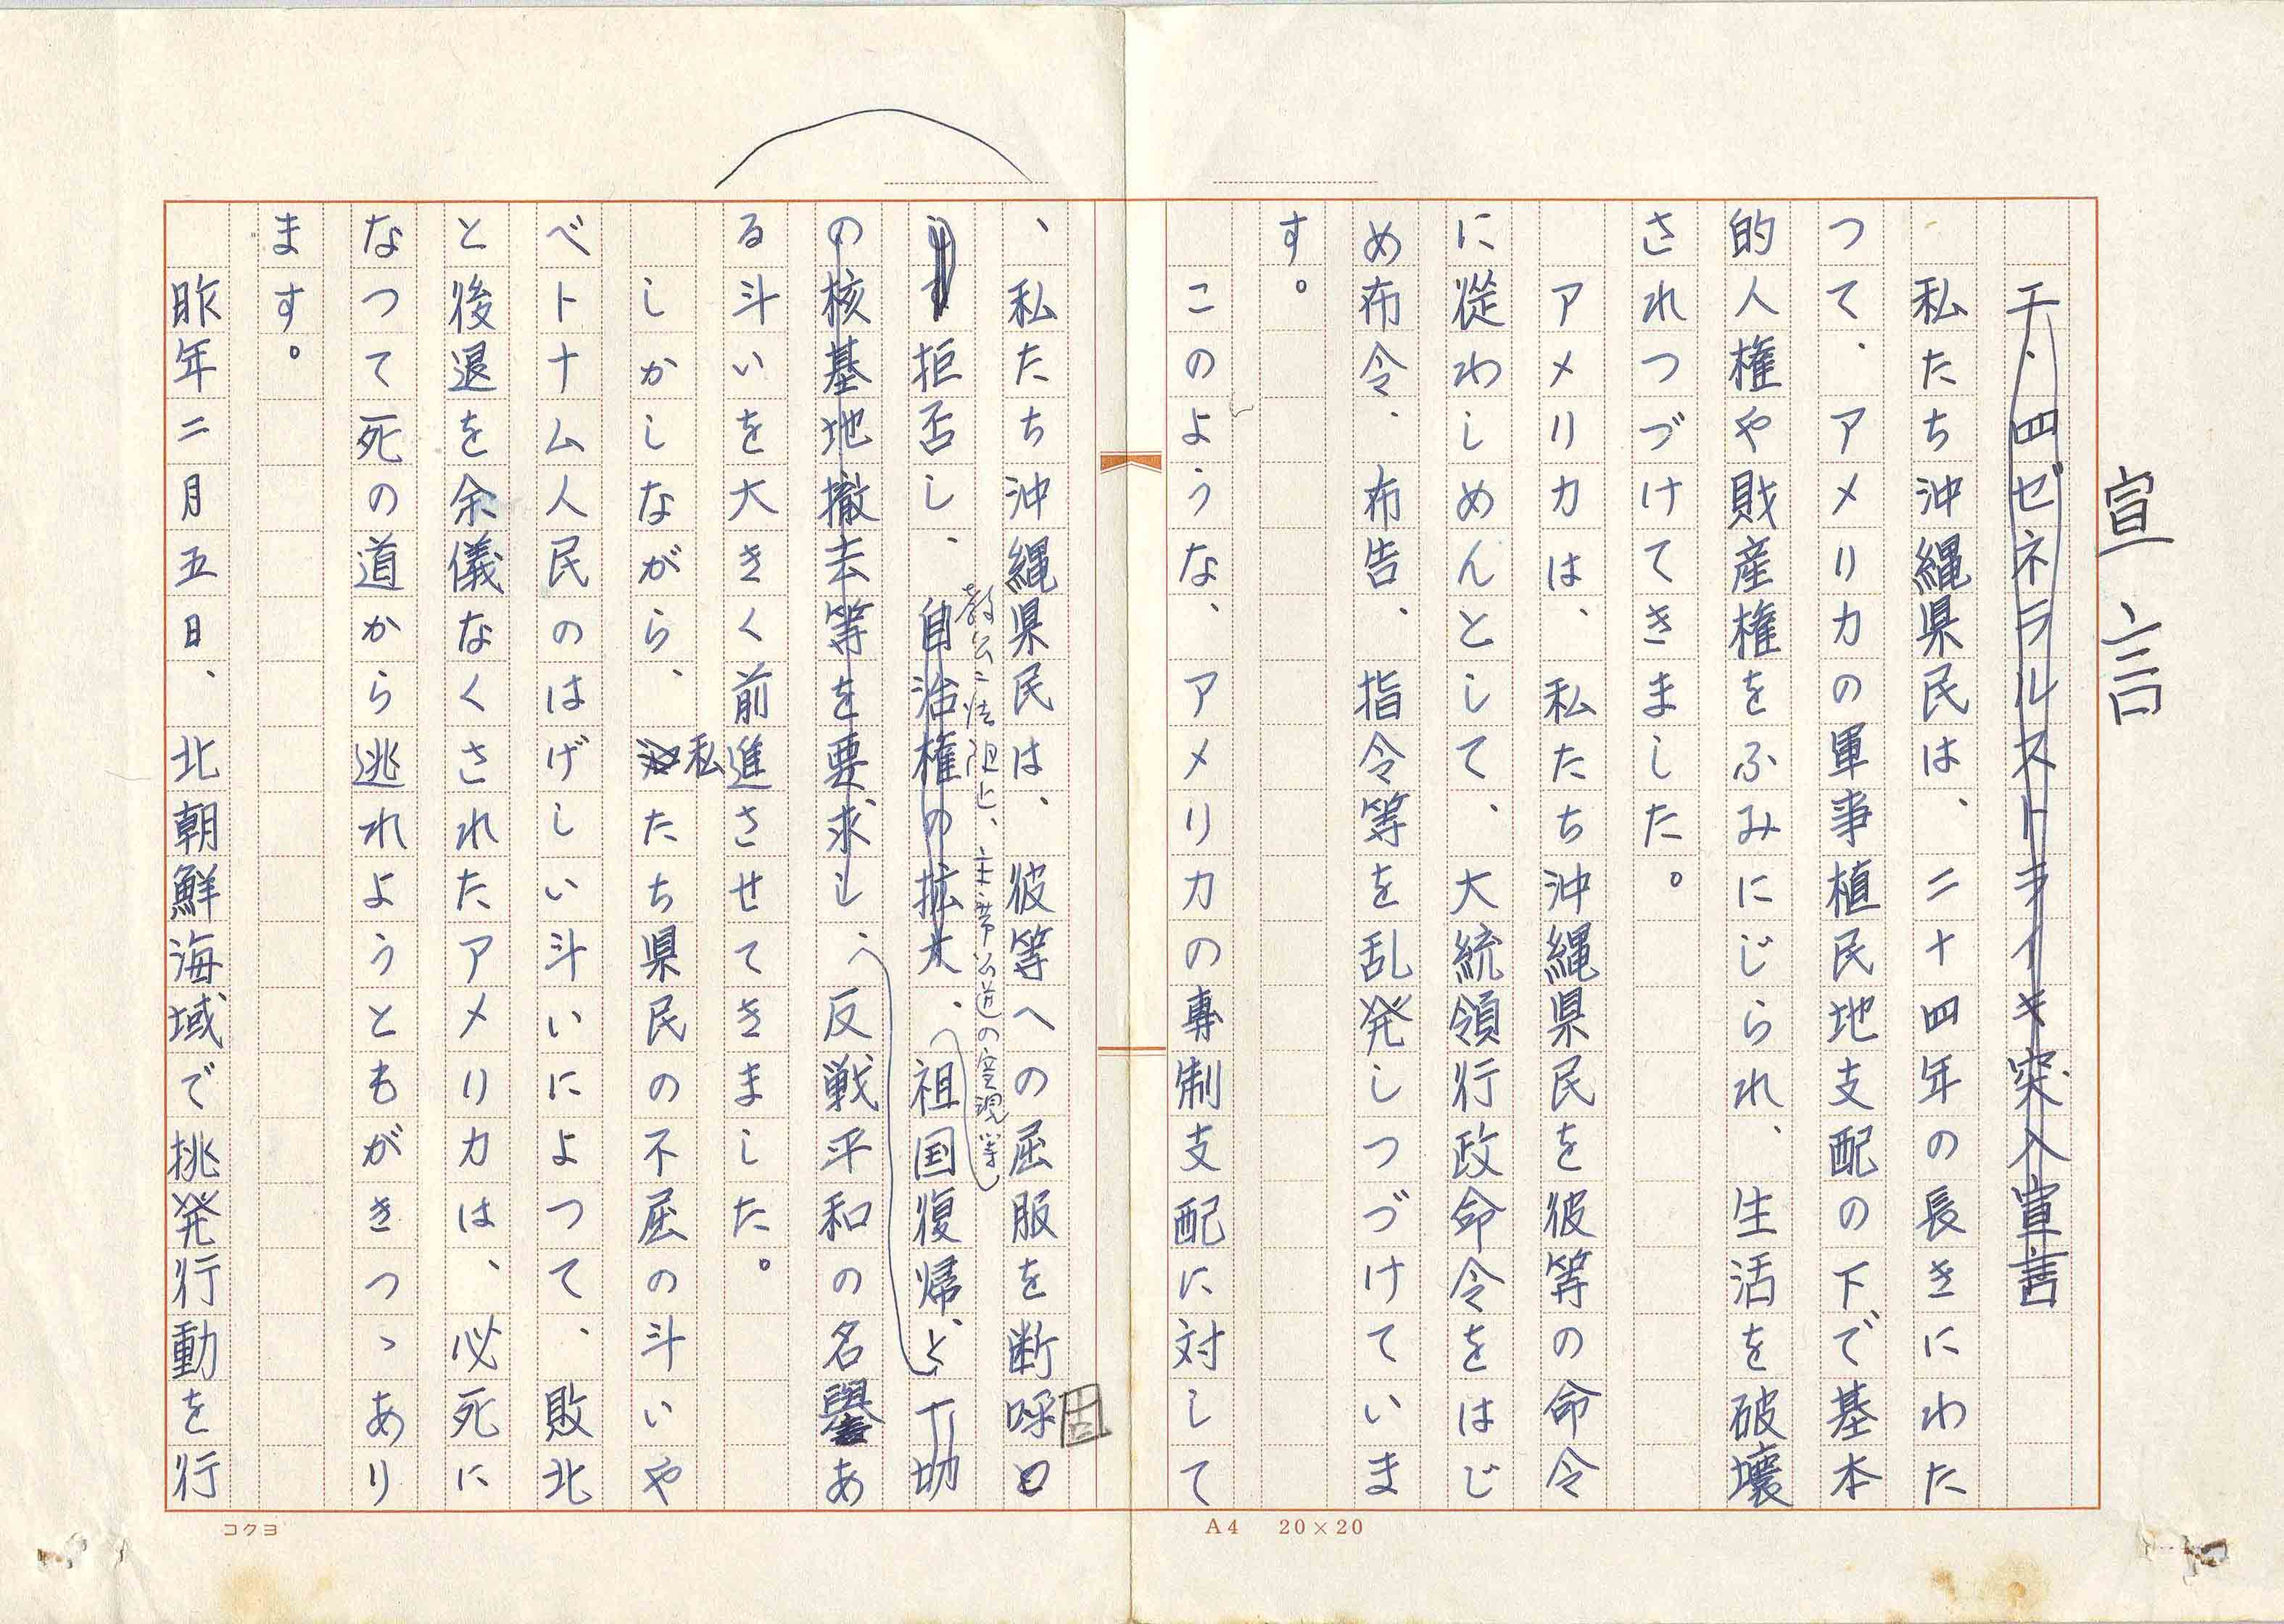 宣言
二、四ゼネラルストライキ突入宣言
私たち沖縄県民は、二十四年の長きにわた
って、アメリカの軍事植民地支配の下で基本
的人権や財産権をふみにじられ、生活を破壊
されつづけてきました。
アメリカは、私たち沖縄県民を彼等の命令
に従わしめんとして、大統領行政命令をはじ
め布令、布告、指令等を乱発しつづけていま
す。
このような、アメリカの専制支配に対して
、私たち沖縄県民は、彼等への屈服を断呼と
固
教公二法阻止、主席公選の実現等
拒否し、自治権の拡大、祖国復帰、と一切
の核基地撤去等を要求し、反戦平和の名誉あ
る斗いを大きく前進させてきました。
しかしながら、私たち県民の不屈の斗いや
ベトナム人民のはげしい斗いによって、敗北
と後退を余儀なくされたアメリカは、必死に
なって死の道から逃れようともがきつゝあり
ます。
昨年二月五日、北朝鮮海域で挑発行動を行
コクヨ
A4 20×20